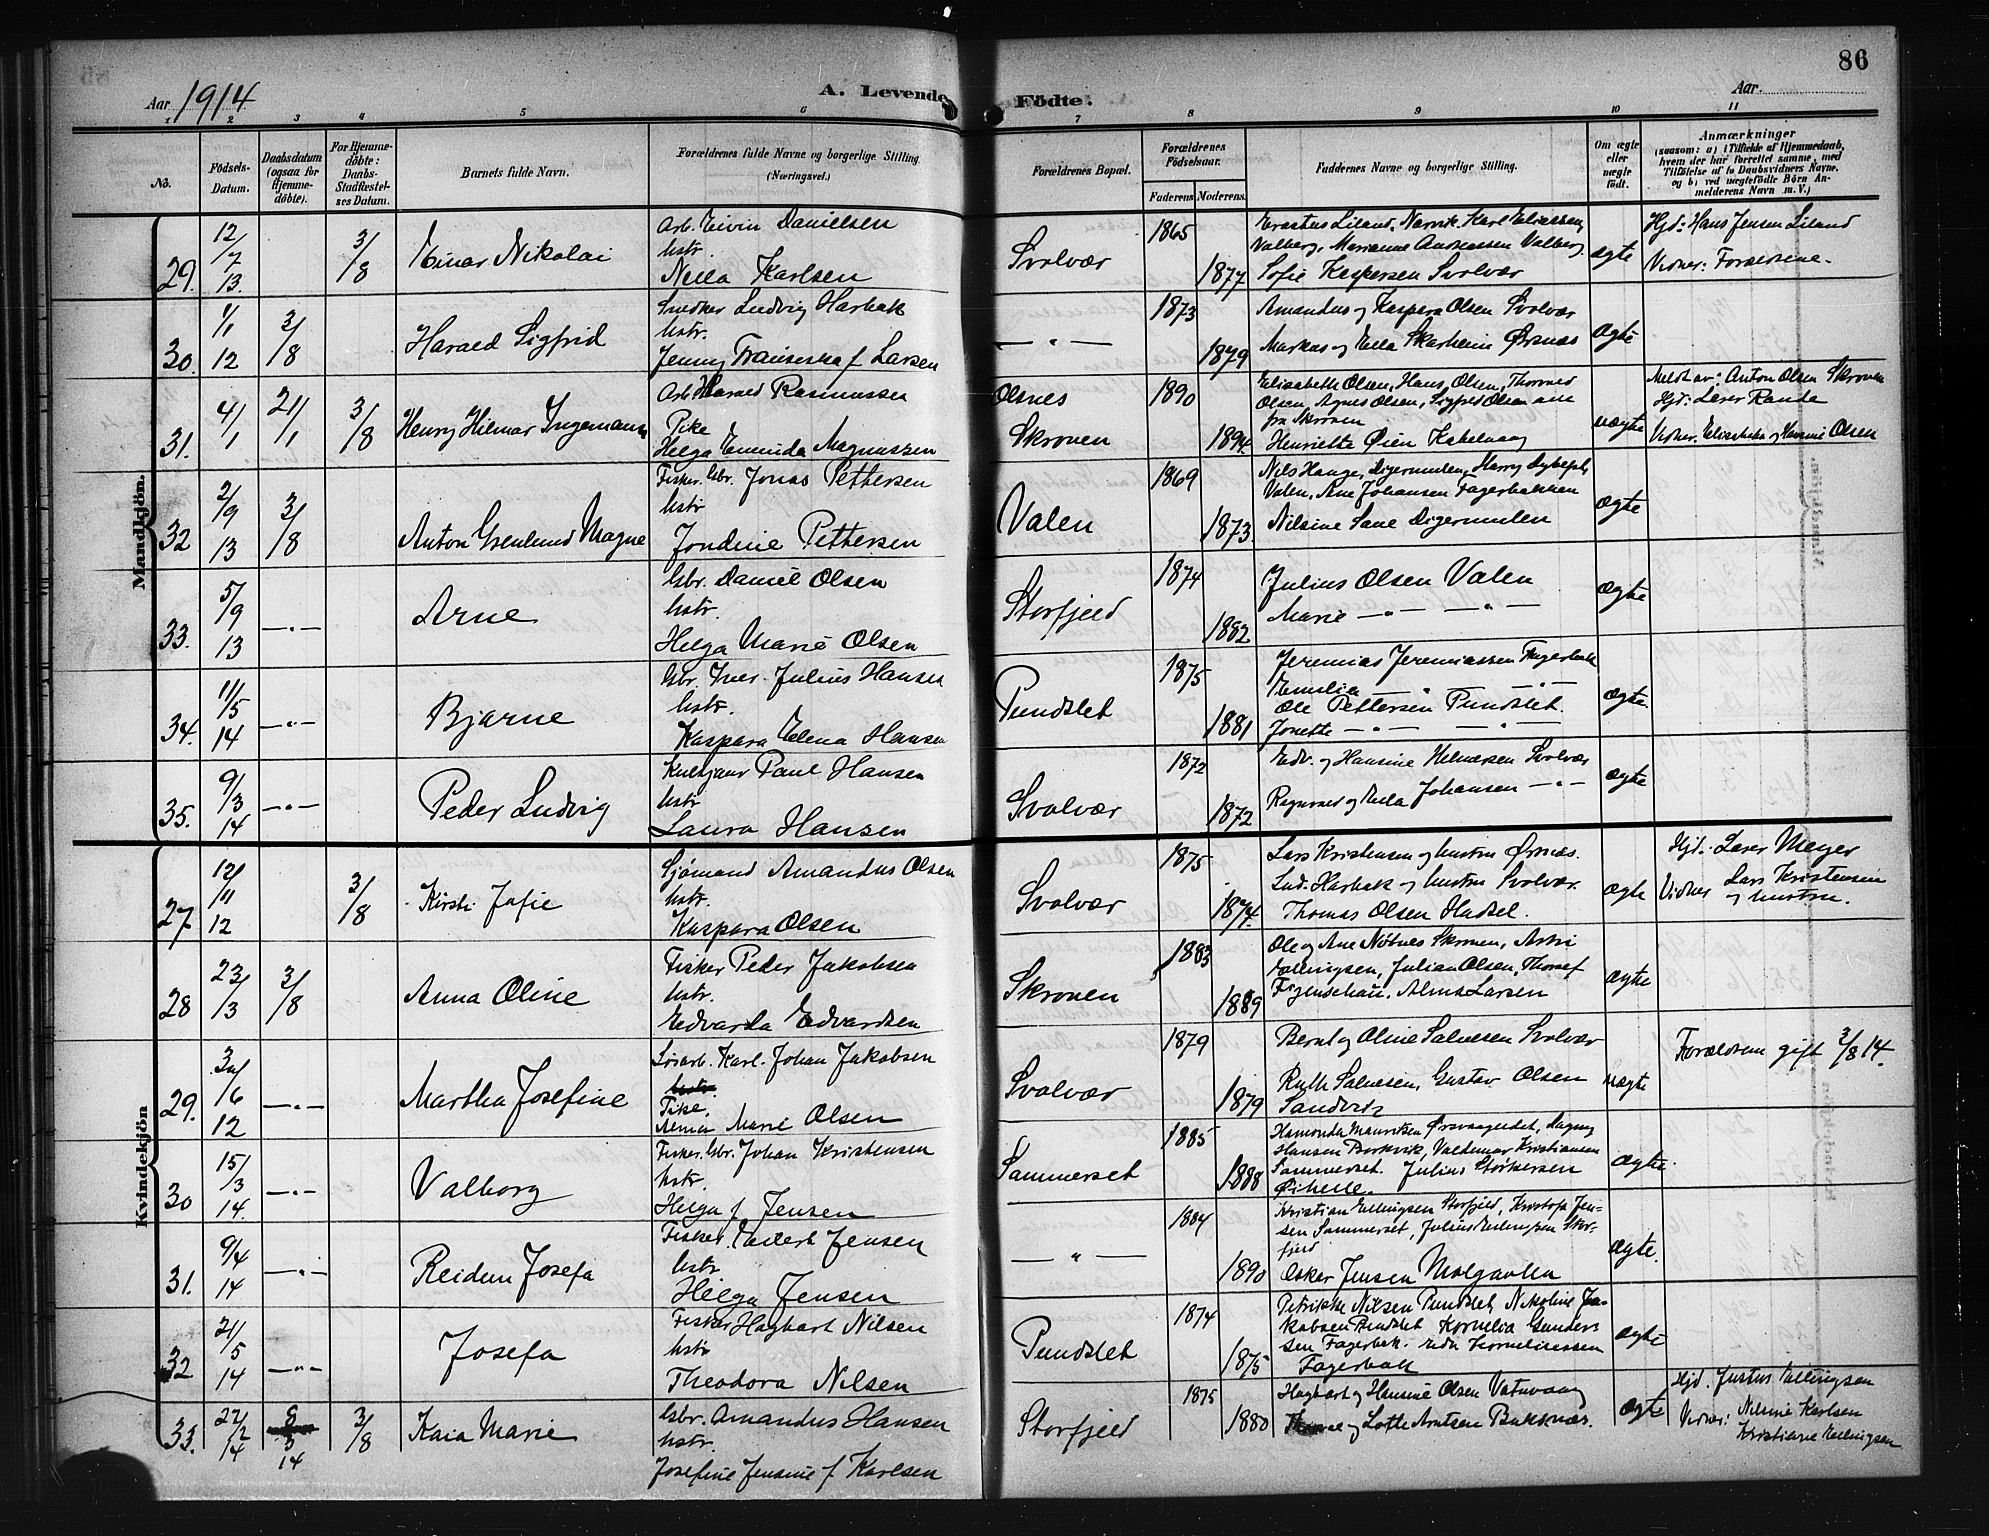 86
Aar 1914
A. Levende Födte.
Aar
1 2 3 4 5 6 7 8 9 10 11
No.
Födsels-Datum.
Daabsdatum (ogsaa for Hjemme-döbte).
For Hjemme-döbte: Daabs-Stadfæstel-ses Datum.
Barnets fulde Navn.
Forældrenes fulde Navne og borgerlige Stilling. (Næringsvei.)
Forældrenes Bopæl.
Forældrenes Födselsaar.
Faderens. Moderens.
Faddernes Navne og borgerlige Stilling.
Om ægte eller uægte födt.
Anmærkninger
(saasom: a) i Tilfælde af Hjemmedaab, hvem der har forrettet samme, med Tilföielse af to Daabsvidners Navne, og b) ved uægtefödte Börn Anmelderens Navn m. V.)
Mandkjön.
29. 12/7 13 3/8 Einar Nikolai
Arb. Eivin Danielsen
hstr.
Nella Karlsen
Svolvær 1865 1877
Erastus Liland, Narvik, Karl Eliassen
Valberg, Marianne Andreassen Valberg
Sofie Kaspersen Svolvær
ægte
Hjd: Hans Jensen Liland
Vidner: Forældrene.
30. 1/1 12 3/8 Harald Sigfrid
Snedker Ludvig Harbak
hstr.
Jenny Franseska f. Larsen
— " — 1873 1879
Amandus og Kaspara Olsen Svolvær
Markus og Ella Skarheim Ørsnes
ægte
31. 4/1 1 21/1 3/8 Henry Hilmar Ingemann
Arb. Harald Rasmussen
Pike
Helga Eminda Magnussen
Olsnes
Skroven 1890 1894.
Elisabeth Olsen, Hans Olsen, Thorvald
Olsen, Agnes Olsen, Sigfred Olsen alle
fra Skroven
Henriette Øien Kabelvaag
uægte
Meldt av: Anton Olsen Skroven
Hjd: Lærer Rande
Vidner: Elisabeth og Hanna Olsen
32 2/9 13 3/8 Anton Grenlund Magne
Fisker. Gbr. Jonas Pettersen
hstr
Jondine Pettersen
Valen 1869 1873.
Nils Hauge, Digermulen, Harry
Valen, Ane Johansen Fagerbakken
Nilsine Sane Digermulen
ægte
33. 5/9 13 — " — Arne
Gbr. Daniel Olsen
hstr.
Helga Marie Olsen
Storfjeld 1874 1882
Julius Olsen Valen
Marie — " — — " —
ægte
34. 11/5 14 — " — Bjarne
Gbr. Iver Julius Hansen
hstr.
Kaspara Elena Hansen
Pundslet 1875 1881
Jeremias Jeremiassen Fagerbak
Emilie — " — — " —
Ole Pettersen Pundslet.
Jonette — " — — " —
ægte.
35. 9/3 14 — " — Peder Ludvig
Paul Hansen
hstr
Laura Hansen
Svolvær 1872 1872
Edv. og Hansine Helmersen Svolvær
Ragnvald og Ella Johansen — " —
ægte
Kvindekjön
27 12/11 12 3/8 Kirsti Jofie
Sjømand Amandus Olsen
hstr.
Kaspara Olsen
Svolvær 1875 1874.
Lars Kristensen og hustru Ørsnes.
Lud. Harbak og hustru Svolvær.
Thomas Olsen Hadsel.
ægte
Hjd: Lærer Meyer
Vidner Lars Kristensen
og hustru.
28 23/3 13 3/8 Anna Oline
Fisker Peder Jakobsen
hstr.
Edvarda Edvardsen
Skroven 1883 1889
Ole og Ane Nøtnes Skroven,
Ellingsen, Julian Olsen, Thoralf
Figenschau. Alma Larsen
ægte
29. 30/6 12 — " — Martha Josefine
Løsarb. Karl Johan Jakobsen
hstr.
Pike.
Alma Marie Olsen
Svolvær 1879 1879
Bernt og Oline Salvesen Svolvær
Ruth Salvesen, Gustav Olsen
Sandvik
uægte
Forældrene gift 2/8 14.
30 15/3 14. — " — Valborg
Fisker. Gbr. Johan Kristensen
hstr.
Helga f. Jensen
Sammerset 1885 1888
Hamonda Mauritsen Ørsvaageidet, Dagny
Hansen Borkvik, Valdemar Kristiansen
Sammerset. Julius Størkersen
Øihelle.
ægte.
31. 9/4 14 — " — Reidun Josefa
Fisker. Edvard Jensen
hstr
Helga Jensen
— " — 1884 1890
Kristian Ellingsen Storfjeld, Kristofa Jen-
sen Sammerset, Julius Ellingsen Stor-
fjeld
Oskar Jensen Molgavlen
ægte.
32 21/5 14 — " — Josefa
Fisker Hagbart Nilsen
hstr
Theodora Nilsen
Pundslet 1874 1875
Petrikke Nilsen Pundslet, Nikoline Ja-
kobsen Pundslet Kornelia Gunder-
sen Fagerbak. Edv. Korneliussen
Fagerbak
ægte
33. 22/2 14 14 3/8 Kaia Marie
Gbr. Amandus Hansen
hstr.
Josefine Jensine f. Karlsen
Storfjeld 1875 1880
Hagbart og Hansine Olsen Vatervaag
og Lotte Arntsen Buksnes.
ægte
Hjd. Justus Ellingsen
Vidner: Nilsine Karlsen
Kristiane Ellingsen